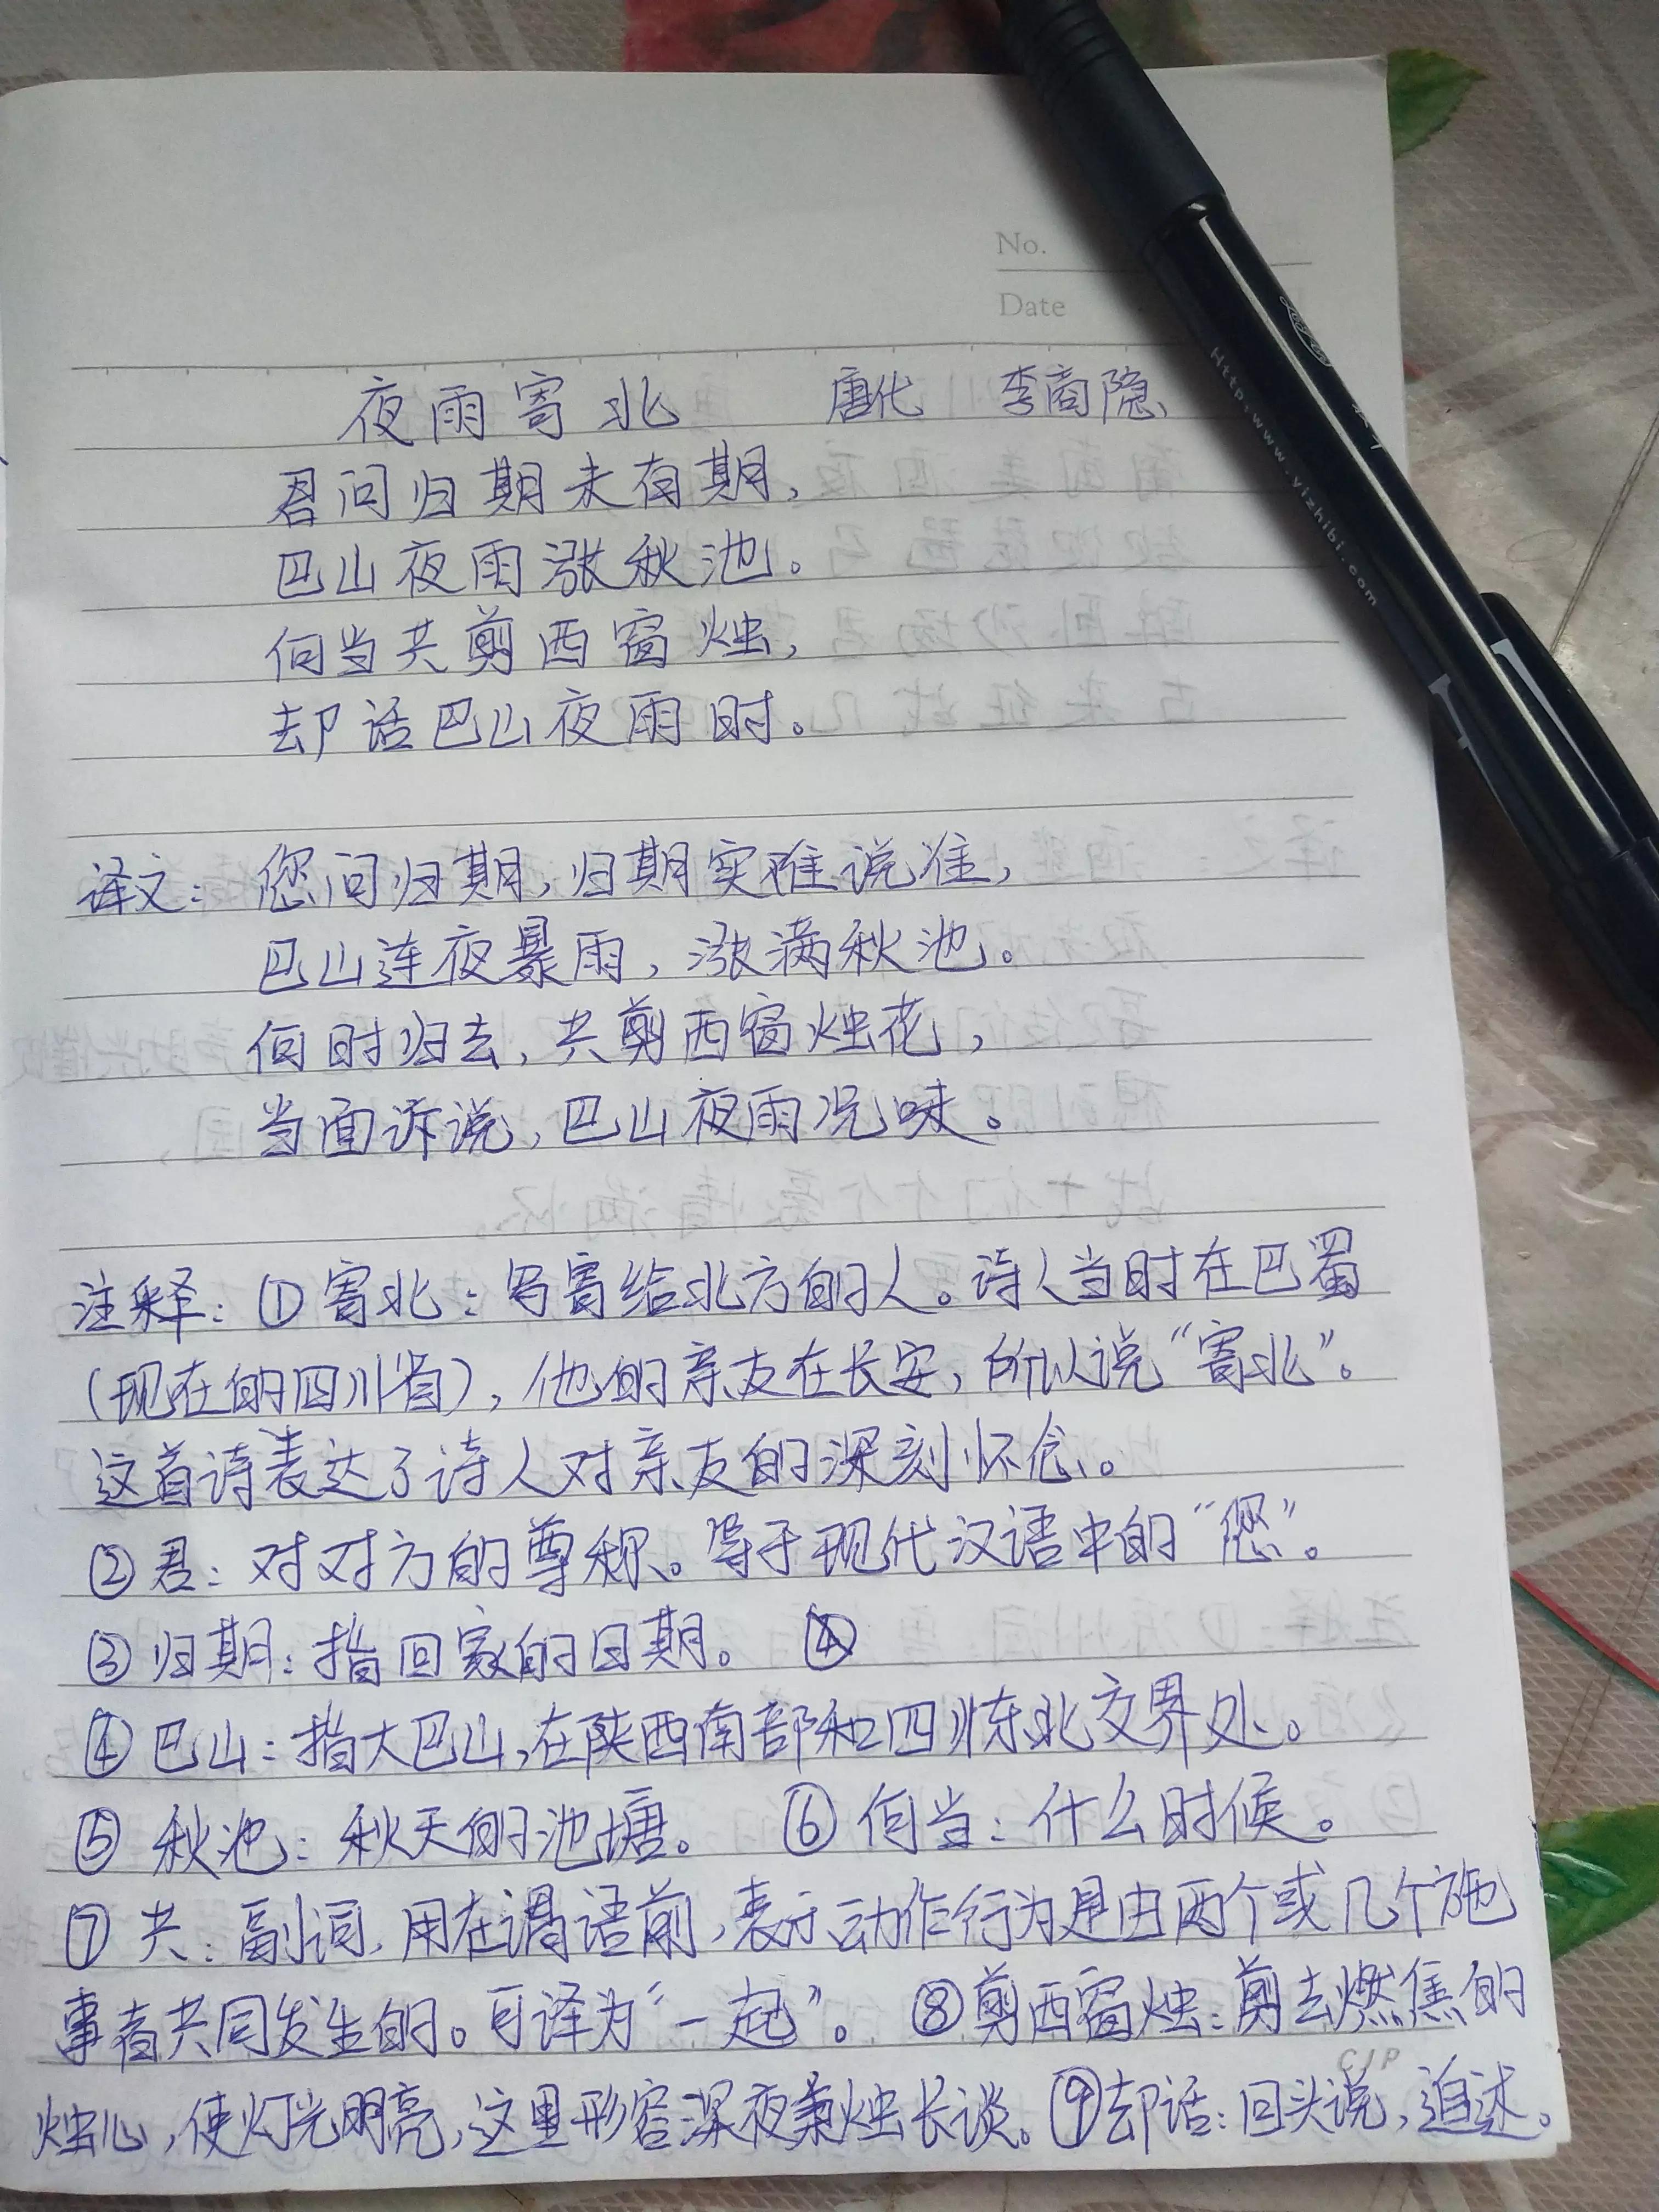 No.
Date
夜雨寄北 唐代 李商隐
君问归期未有期，
巴山夜雨涨秋池。
何当共剪西窗烛，
却话巴山夜雨时。
译文：您问归期，归期实难说准，
巴山连夜暴雨，涨满秋池。
何时归去，共剪西窗烛花，
当面诉说，巴山夜雨况味。
注释：①寄北：写寄给北方的人。诗人当时在巴蜀
（现在的四川省），他的亲友在长安，所以说“寄北”。
这首诗表达了诗人对亲友的深刻怀念。
②君：对对方的尊称。等于现代汉语中的“您”。
③归期：指回家的日期。 ④
④巴山：指大巴山，在陕西南部和四川东北交界处。
⑤秋池：秋天的池塘。 ⑥何当：什么时候。
⑦共：副词，用在谓语前，表示动作行为是由两个或几个施
事者共同发生的。可译为“一起”。 ⑧剪西窗烛：剪去燃焦的
烛心，使灯光明亮，这里形容深夜秉烛长谈。⑨却话：回头说，追述。
CJP
Http:www.yizhibi.com